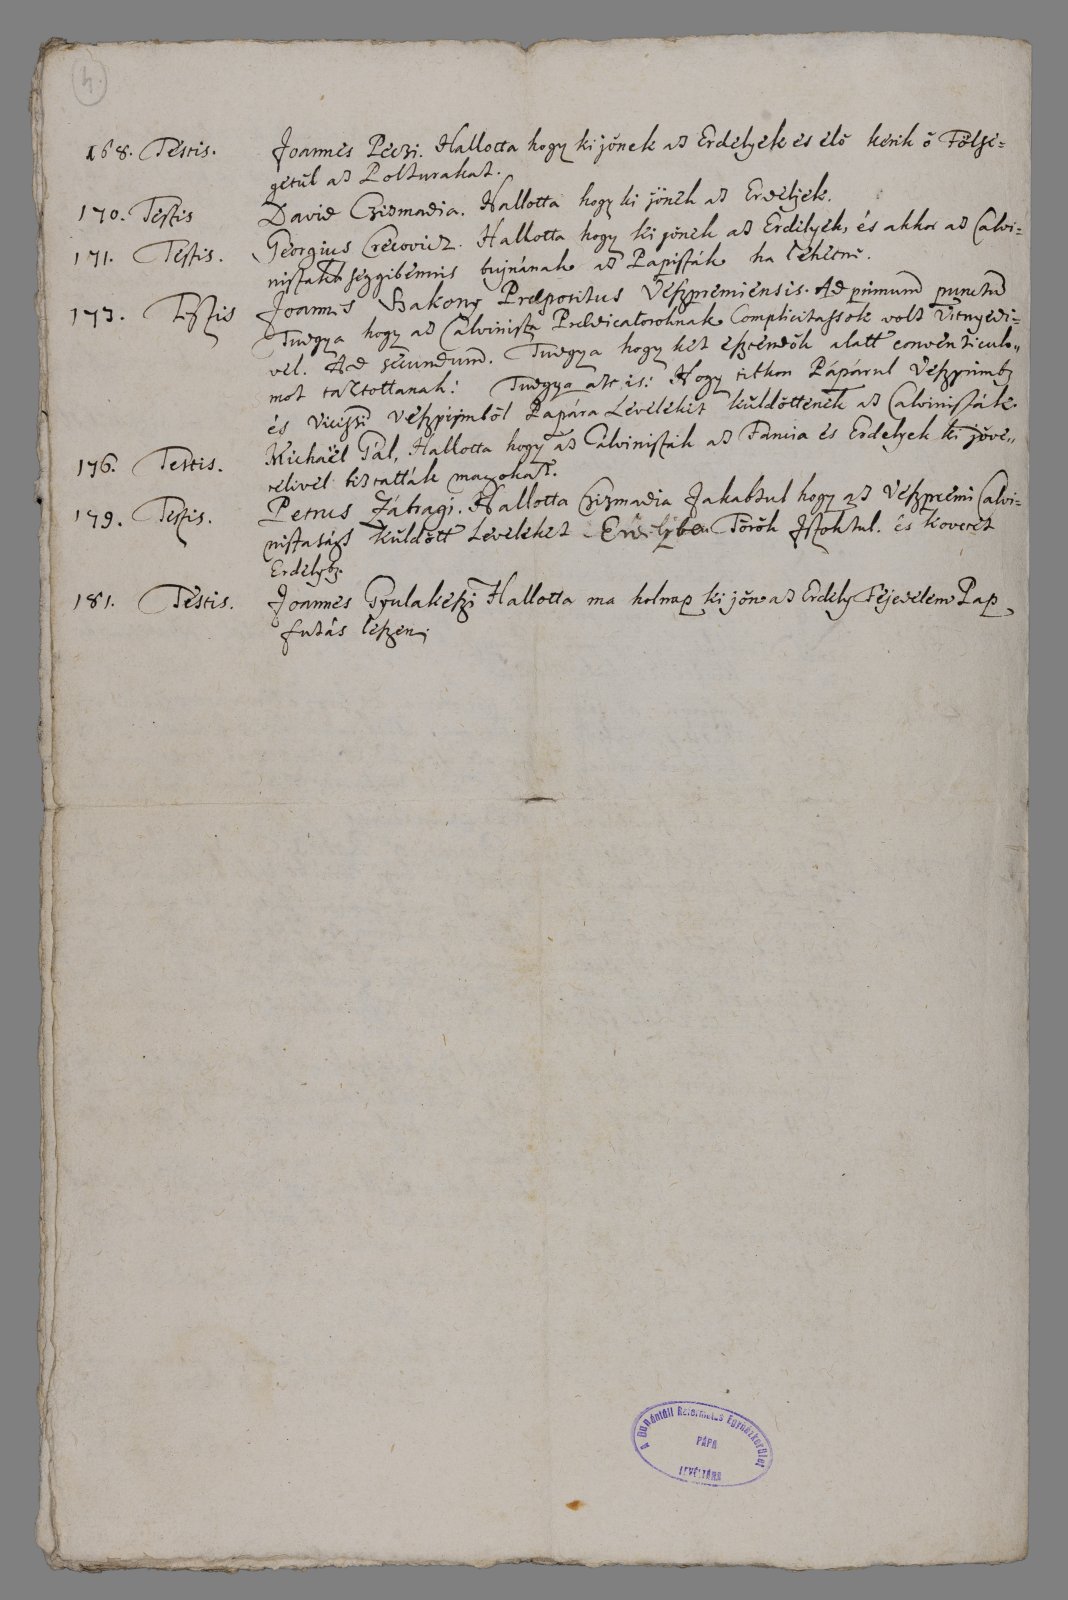 4.
168. Testis. Joannes Péczi. Hallotta hogy ki jőnek az Erdélyek és élő kérik ő Fölsé=
getül az Polturakat.
170. Testis David Csizmadia. Hallotta hogy ki jőnek az Erdelyek.
171. Testis. Georgius Crecovicz. Hallotta hogy ki jőnek az Erdélyek, és akkor az Calvi=
nisták bujnának az Papisták ha lehetne.
173. Testis Joannes Szakony Praepositus Veszpremiensis. Ad primum punctum
Tudgya hogy az Calvinista Praedicatoroknak Complicitassok volt Vitnyedi=
vel. Ad secundum. Tudgya hogy két esztendők alatt conventiculu=
mot tartottanak: Tudgya azt is: Hogy titkon Pápárul Veszprimbe
és vicissim Veszprimből Papára Leveleket küldöttenek az Calvinisták.
176. Testis. Michaël Gál, Hallotta hogy az Calvinisták az Francia és Erdelyek ki jöve=
telivel biztatták magokat.
179. Testis. Petrus Zábragi. Hallotta Csizmadia Jakabtul hogy az Veszpremi Calvi=
nistaság küldött Leveleket Erdelyben Török Istoktul. és követet
Erdélybe.
181. Testis. Joannes Gyulakészi Hallotta ma holnap ki jőn az Erdely Fejedelem Pap
futás leszen;
A Dunántúli Református Egyházkerület
PÁPA
LEVÉLTÁRA